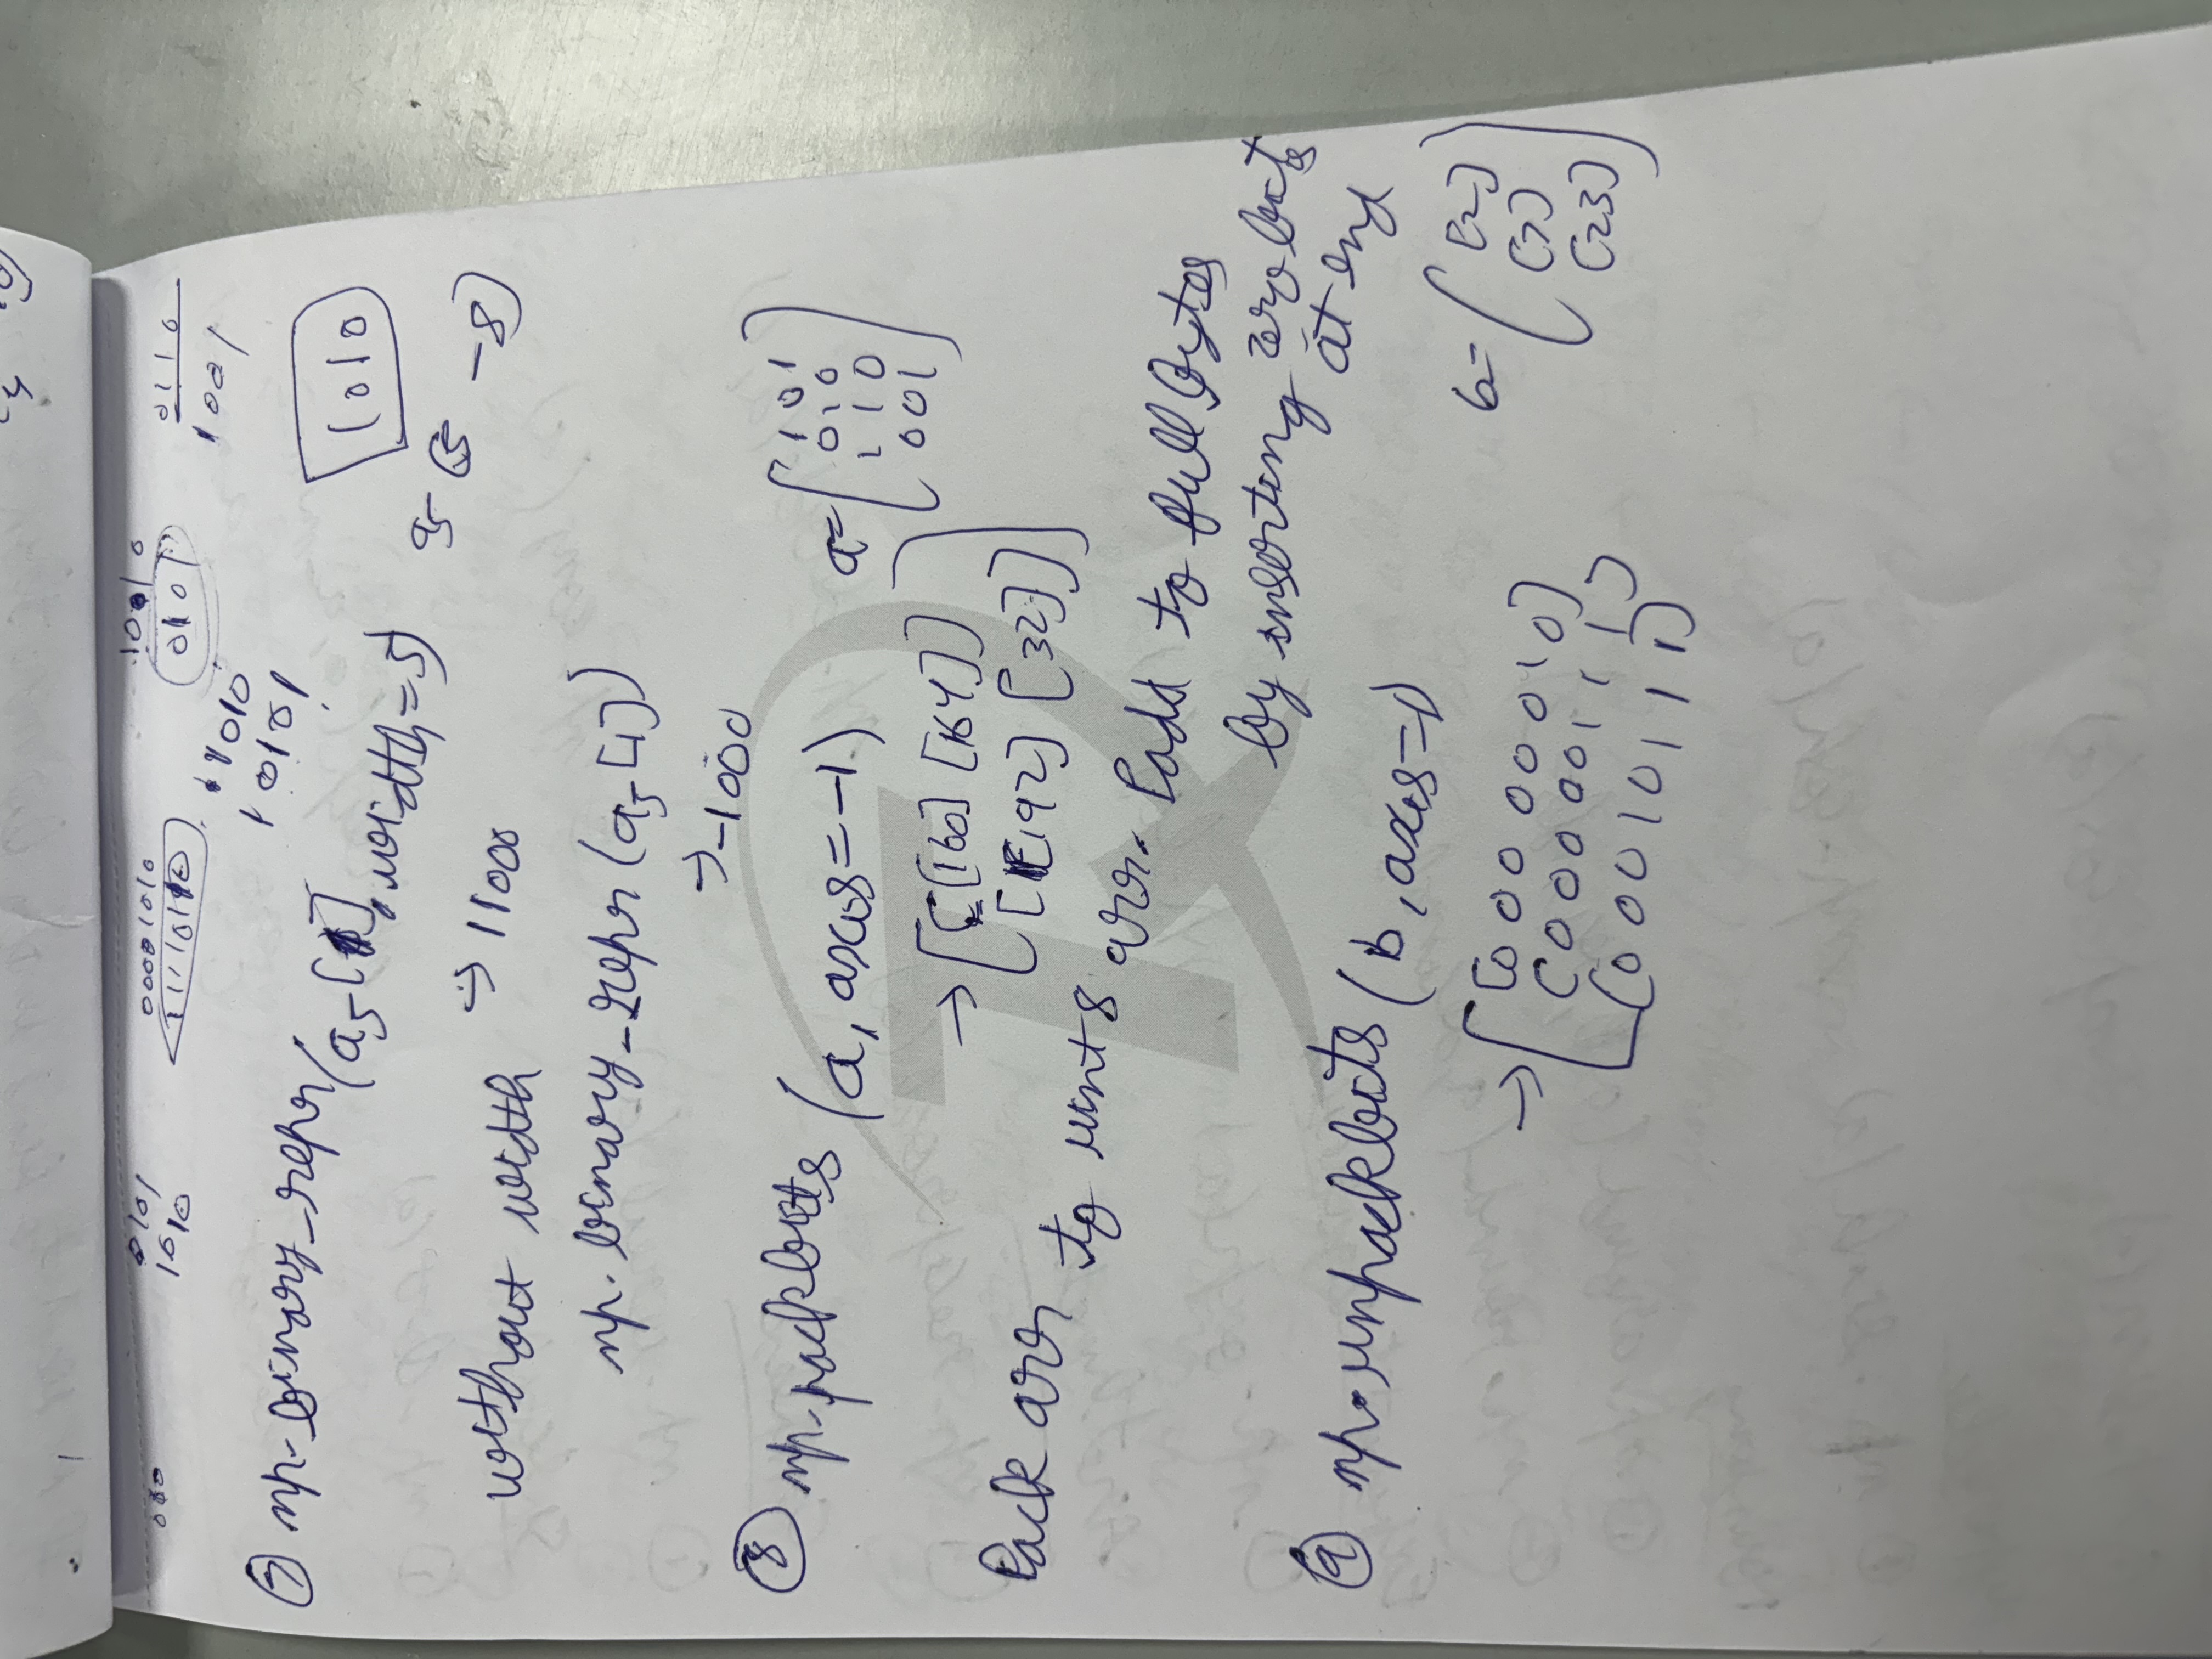 000 0101 00001010 10010 0110
1010 11110110 0101 1001
11010
10101
⑦ np.binary_repr(a5[1], width=5)
1010
a5 (5 -8)
without width → 11000
np.binary_repr(a5[1])
→ -1000
⑧ np.packbits (a, axis=-1)
a=[101
010
110
001]
→ [[[160] [164]]
[[192] [32]]]
Pack arr to uint8 arr. Padd to full bytes
by inserting zero bits
at end
⑨ np.unpackbits (b, axis=1)
b= [[2]
[7]
[23]]
→ [[0 0 0 0 0 0 1 0]
[0 0 0 0 0 1 1 1]
[0 0 0 1 0 1 1 1]